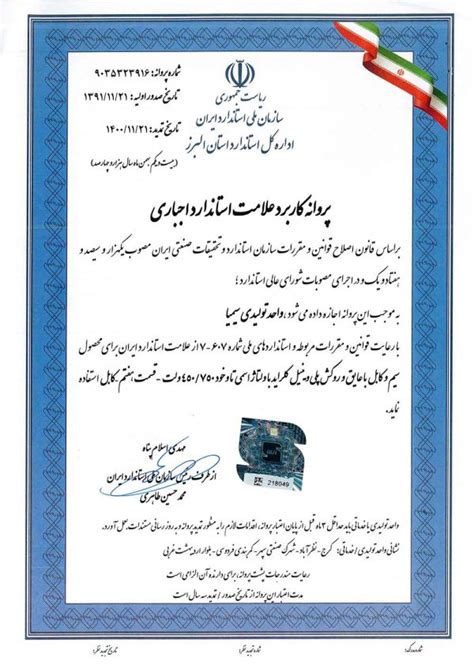 شماره پروانه: ۹۰۳۵۳۲۳۹۱۶
تاریخ صدور اولیه: ۱۳۹۱/۱۱/۲۱
تاریخ تمدید: ۱۴۰۰/۱۱/۲۱
(بیست و یکم بهمن ماه سال هزار و چهارصد)
ریاست جمهوری
سازمان ملی استاندارد ایران
اداره کل استاندارد استان البرز
پروانه کاربرد علامت استاندارد اجباری
براساس قانون اصلاح قوانین و مقررات سازمان استاندارد و تحقیقات صنعتی ایران مصوب یکهزار و سیصد و
هفتاد و یک و در اجرای مصوبات شورای عالی استاندارد؛
به موجب این پروانه اجازه داده می شود، واحد تولیدی سیمیا
با رعایت قوانین و مقررات مربوطه و استانداردهای ملی شماره ۶۰۷-۷ از علامت استاندارد ایران برای محصول
سیم و کابل با عایق و روکش پلی وینیل کلراید با ولتاژ اسمی تا و خود ۴۵۰/۷۵۰ ولت - قسمت هفتم - کابل استفاده
نماید.
مهدی اسلام پناه
از طرف رئیس سازمان ملی استاندارد ایران
محمد حسین طاهری
218049
واحد تولیدی یا خدماتی باید حداقل ۳ ماه قبل از پایان اعتبار پروانه، اقدامات لازم را به منظور تمدید پروانه و به روز رسانی مستندات، بعمل آورد.
نشانی واحد تولیدی (خدماتی): کرج - نظرآباد - شهرک صنعتی سپهر - کمربندی فردوسی - بلوار اردیبهشت غربی
رعایت مندرجات پشت پروانه، برای دارنده آن الزامی است
مدت اعتبار این پروانه از تاریخ صدور / تمدید سه سال است
شماره مدرک:
شماره تجدید نظر:
تاریخ تجدید نظر: